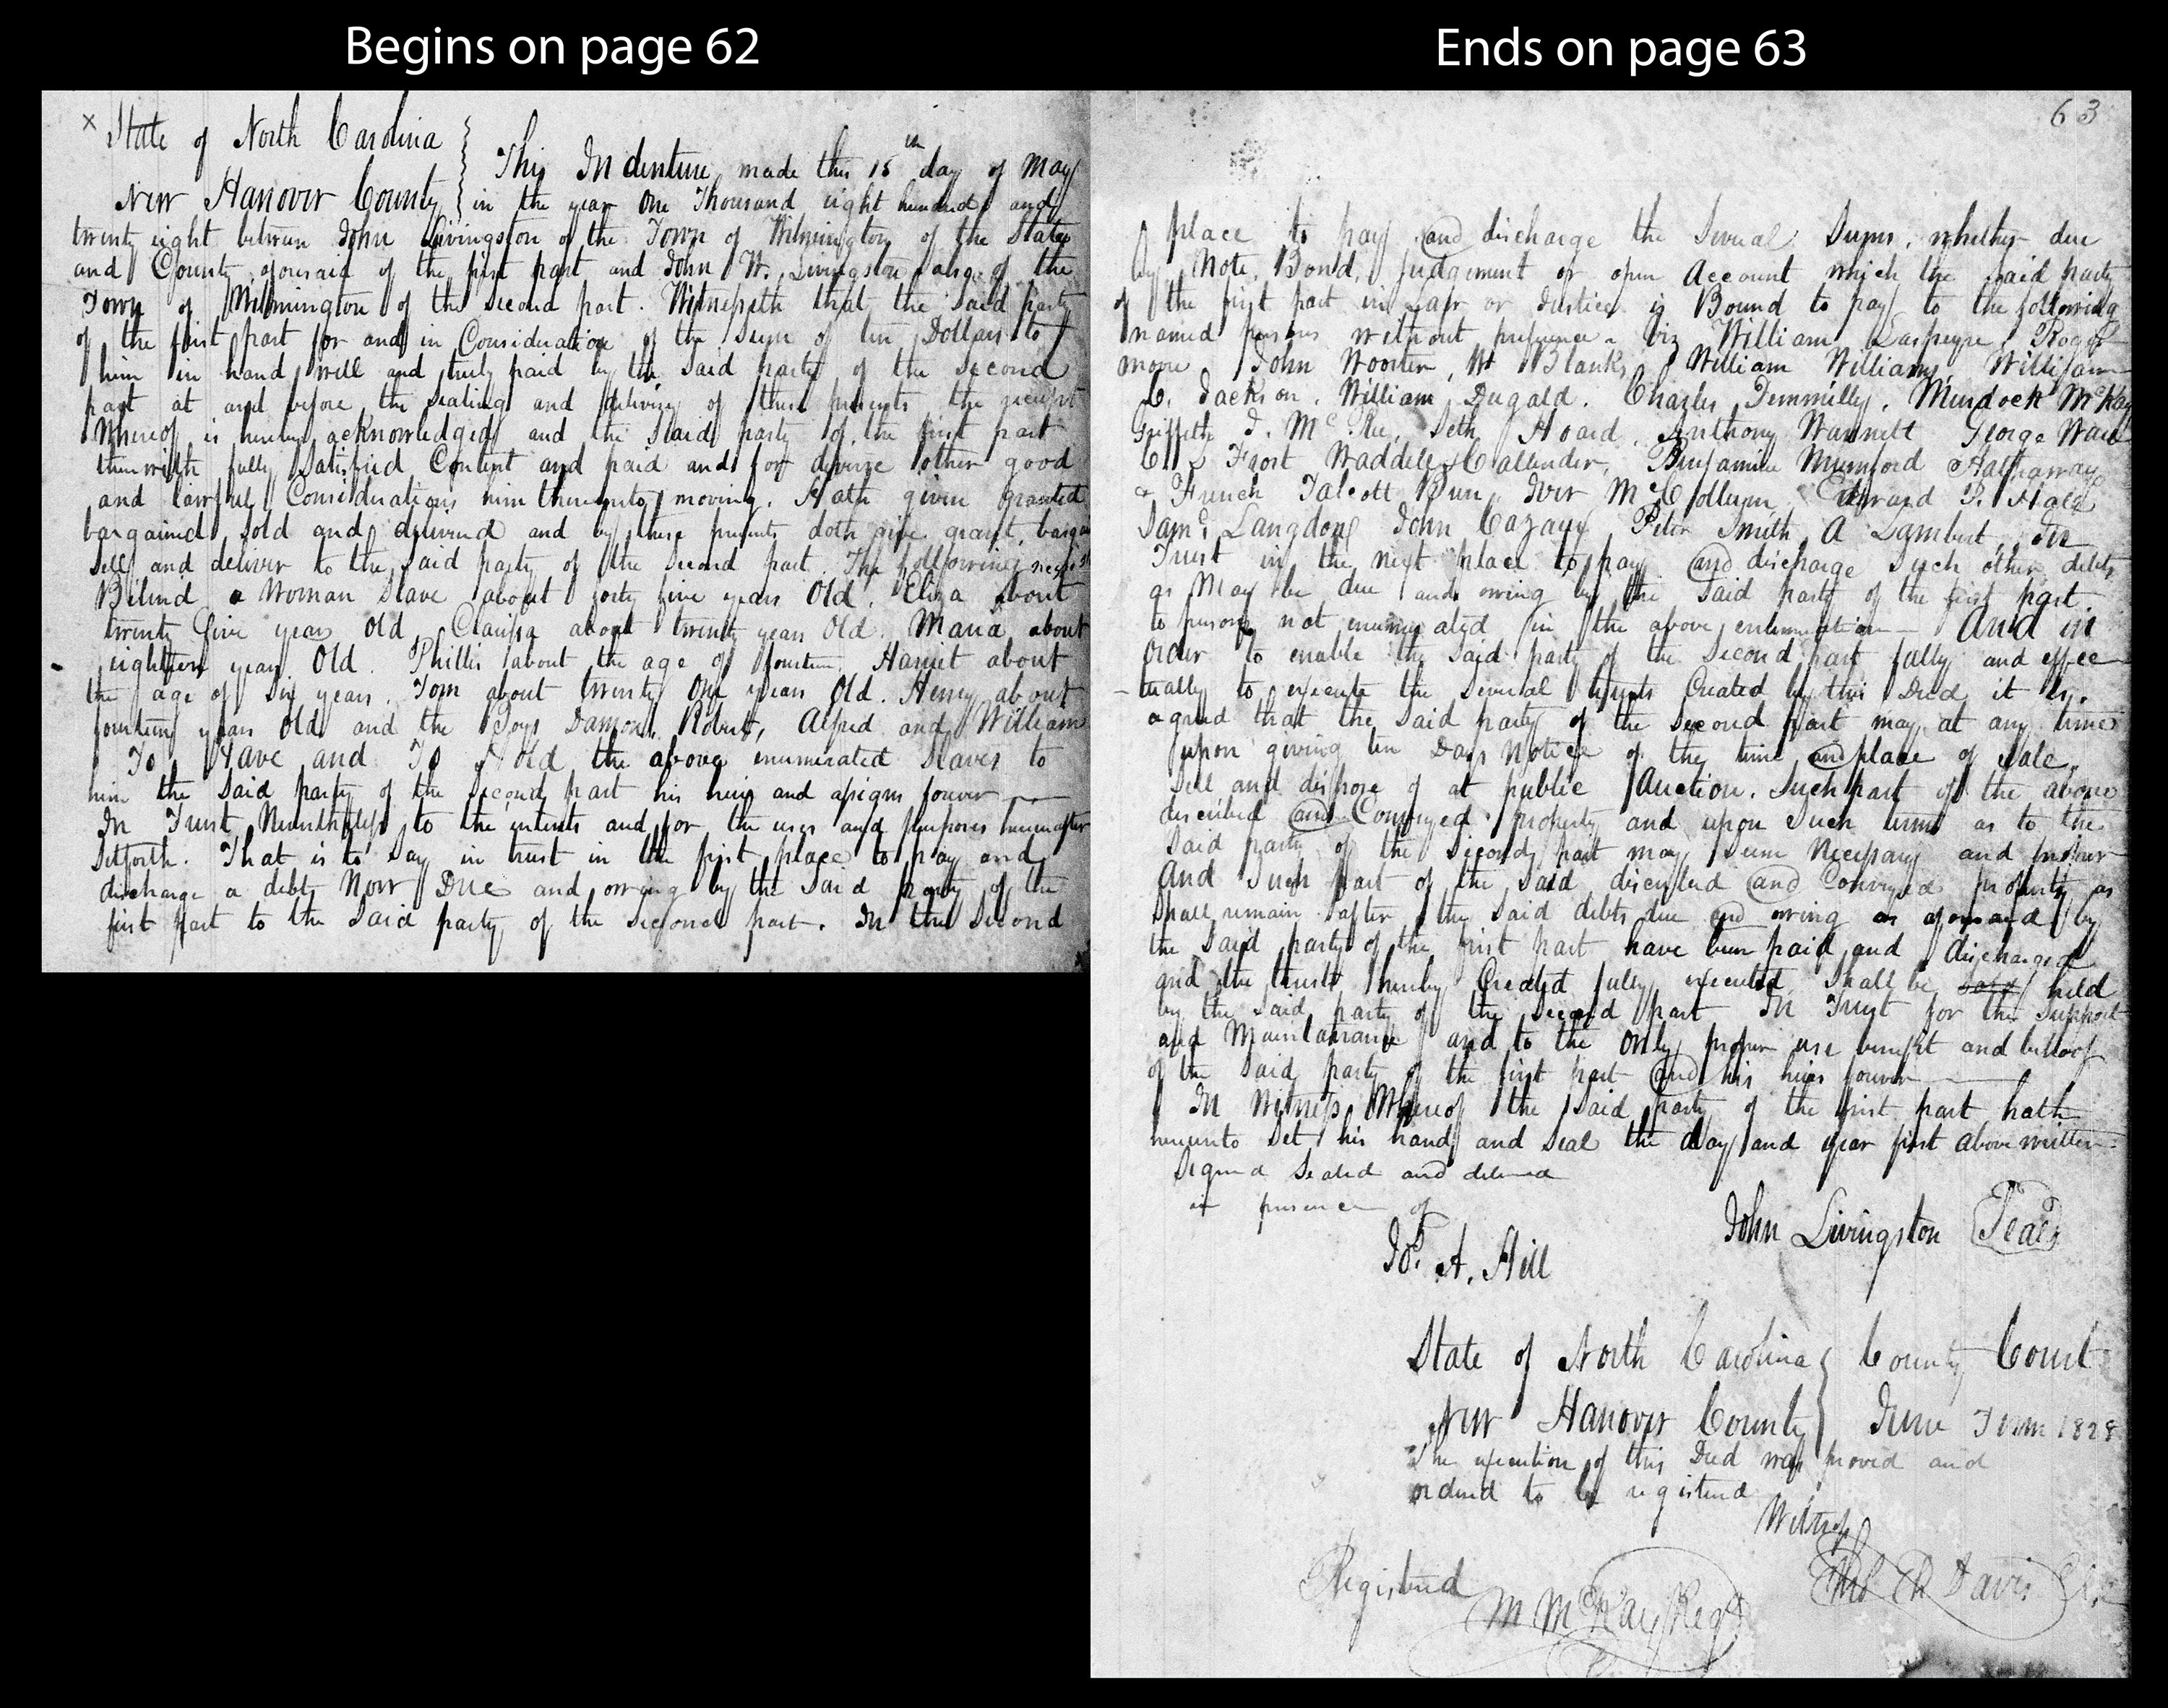 Begins on page 62
x State of North Carolina
New Hanover County
This Indenture made this 15th day of May
in the year One Thousand eight hundred and
twenty eight between John Livingston of the Town of Wilmington of the State
and County aforesaid of the first part and John W. Livingston also of the
Town of Wilmington of the second part. Witnesseth that the said party
of the first part for and in Consideration of the Sum of ten Dollars to
him in hand well and truly paid by the said party of the second
part at and before the sealing and delivery of these presents the receipt
Whereof is hereby acknowledged and the said party of the first part
therewith fully Satisfied Content and paid and for diverse other good
and lawful Considerations him thereunto moving. Hath given granted
bargained sold and delivered and by these presents doth give grant, bargain
sell and deliver to the said party of the second part. The following
a Woman Slave about forty five years Old. Eliza about
twenty five years old Clarissa about twenty years Old. Maria about
eighteen years Old. Phillis about the age of fourteen. Harriet about
the age of six years. Tom about twenty One years Old. Henry about
fourteen years Old and the Boys Damon, Robert, Alfred and William
To Have and To Hold the above enumerated Slaves to
him the said party of the second part his heirs and assigns forever
In Trust Nevertheless to the intents and for the uses and purposes hereinafter
Setforth. That is to say in trust in the first place to pay and
discharge a debt Now Due and owing by the said party of the
first part to the said party of the second part. In the second
Ends on page 63
63
place to pay and discharge the Several Sums, whether due
by Note, Bond, Judgement or open Account which the said party
of the first part in Law or Justice is Bound to pay to the following
named persons without preference. Viz William Laspeyre, Roger
more John Wooster, W Blanks, William Williams, William
C. Jackson. William Dugald. Charles Murdock McKay
Griffeth J. McRee, Seth Hoard, Anthony Wannett George Ward
Frost Waddell & Callender, Benjamin Mumford Hathaway
& French Talcott Iver McCollum, Edward P. Hall
Saml Langdon John Cazaux Peter Smith A Lambert, In
Trust in the next place to pay and discharge such other debts
as May be due and owing by the said party of the first part.
to persons not enumerated in the above enumeration - And in
Order to enable the said party of the second part fully and effec
-tually to execute the several trusts Created by this Deed it is.
agreed that the said party of the second part may at any time
upon giving ten Days Notice of the time and place of sale.
Sell and dispose of at public Auction. Such part of the above
described and Conveyed property and upon such terms as to the
Said party of the second part may seem Necessary and proper
And Such part of the said described and Conveyed property as
shall remain after the said debts due and owing as aforesaid by
the said party of the first part have been paid and discharged
and the trusts hereby Created fully executed. Shall be held
by the said party of the second part In Trust for the support
and Maintanance and to the only proper use benefit and behoof
of the said party of the first part and his heirs forever
In Witness Whereof the said party of the first part hath
hereunto set his hand and seal the day and year first above written.
Signed Sealed and delivered
in presence of
John Livingston Seal
Jo. A. Hill
State of North Carolina
New Hanover County
County Court
June Term 1828
The execution of this Deed was proved and
ordered to be registered
Witness
Registered
M McKay Regr
Thos. Davis